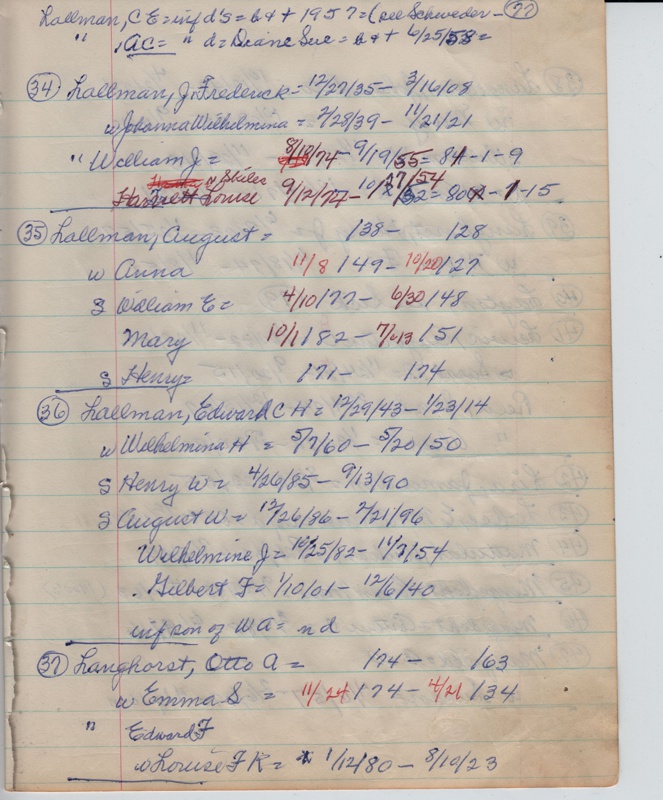 Lallman, C E = inf d's = b&+ 1957 = (see Schweder - 77
" , AC = " d = Diane Sue = b&+ 6/25/58 =
34 Lallman, J. Frederick = 12/27/35 - 3/16/08
w Johanna Wilhelmina = 2/28/39 - 11/21/21
" William J = 8/18/74 - 9/19/55 = 81-1-9
n Skiles
Harriett Louise 9/12/74 - 10/27/54 = 80 - 1-15
35 Lallman, August = /38 - /28
w Anna 11/8/49 - 10/20/27
S William E = 4/10/77 - 6/30/48
Mary 10/1/82 - 7/13/51
S Henry = /71 - /74
36 Lallman, Edward C H = 12/29/43 - 1/23/14
w Wilhelmina H = 5/7/60 - 5/20/50
S Henry W = 4/26/85 - 9/13/90
S August W = 12/26/86 - 2/21/96
Wilhelmine J = 10/25/82 - 11/2/54
. Gilbert F = 1/10/01 - 12/6/40
inf son of W A = nd
37 Langhorst, Otto A = /74 - /63
w Emma S = 11/24/74 - 4/21/34
" Edward F
w Louise F K = 1/12/80 - 8/10/23